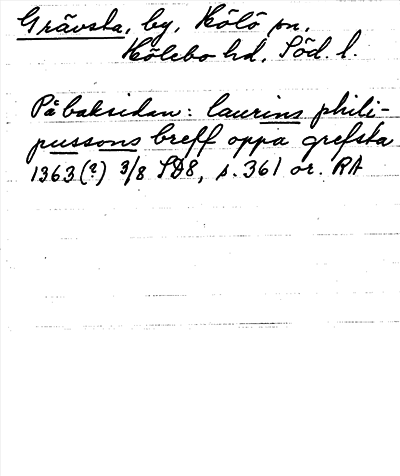 Grävsta, by, Hölö sn,
Hölebo hd, Söd. l.
På baksidan: laurins phili-
pussons breff oppa grefsta
1363(?) 3/8 SD8, s. 361 or. RA